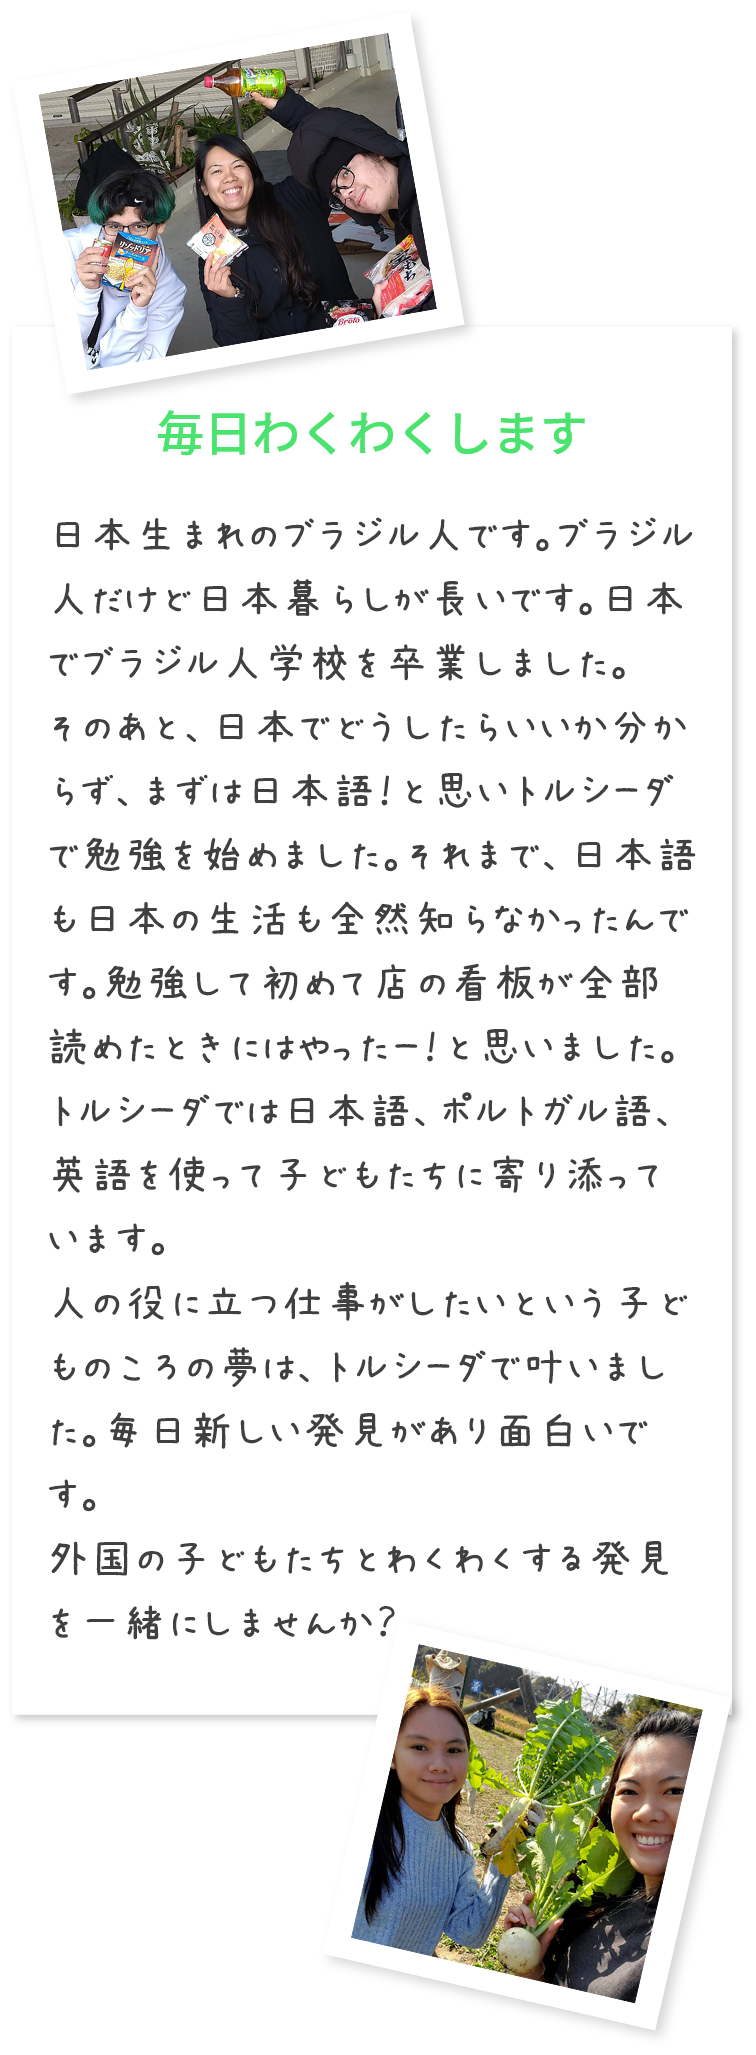 リゾッドリア
Brolo
毎日わくわくします
日本生まれのブラジル人です。ブラジル
人だけど日本暮らしが長いです。日本
でブラジル人学校を卒業しました。
そのあと、日本でどうしたらいいか分か
らず、まずは日本語！と思いトルシーダ
で勉強を始めました。それまで、日本語
も日本の生活も全然知らなかったんで
す。勉強して初めて店の看板が全部
読めたときにはやったー！と思いました。
トルシーダでは日本語、ポルトガル語、
英語を使って子どもたちに寄り添って
います。
人の役に立つ仕事がしたいという子ど
ものころの夢は、トルシーダで叶いまし
た。毎日新しい発見があり面白いで
す。
外国の子どもたちとわくわくする発見
を一緒にしませんか？